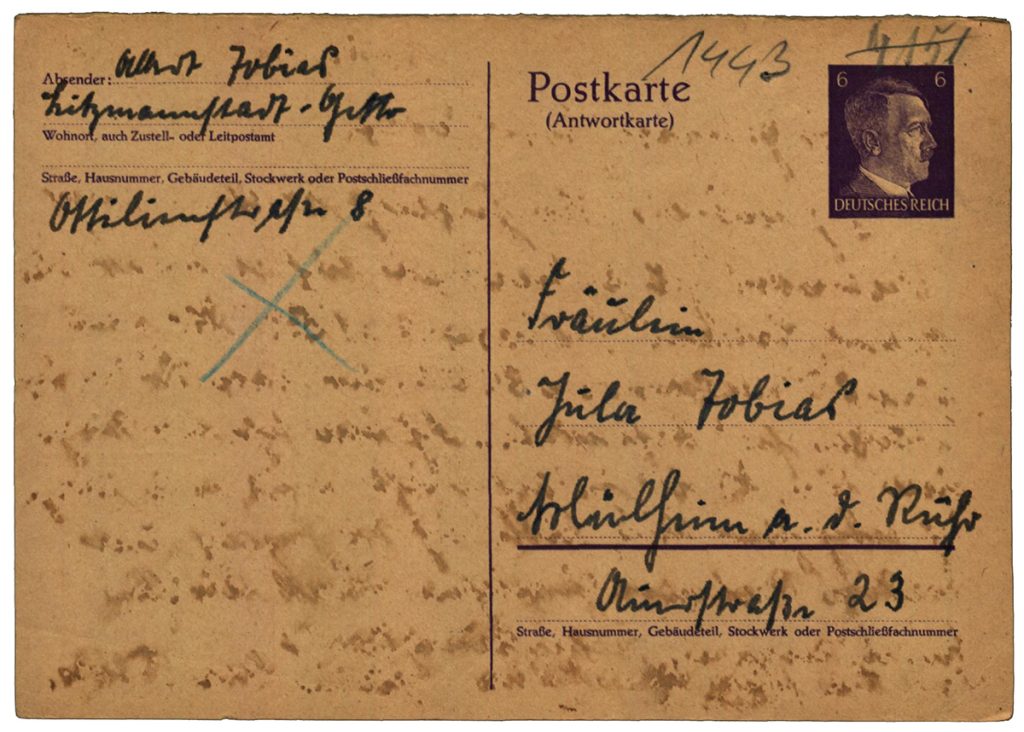 Absender: Albert Tobias
Litzmannstadt-Getto
Wohnort, auch Zustell- oder Leitpostamt
Straße, Hausnummer, Gebäudeteil, Stockwerk oder Postschließfachnummer
Ottilienstraße 8
1443
Postkarte
(Antwortkarte)
6 6
DEUTSCHES REICH
Fräulein
Jula Tobias
Mülheim a. d. Ruhr
Auerstraße 23
Straße, Hausnummer, Gebäudeteil, Stockwerk oder Postschließfachnummer